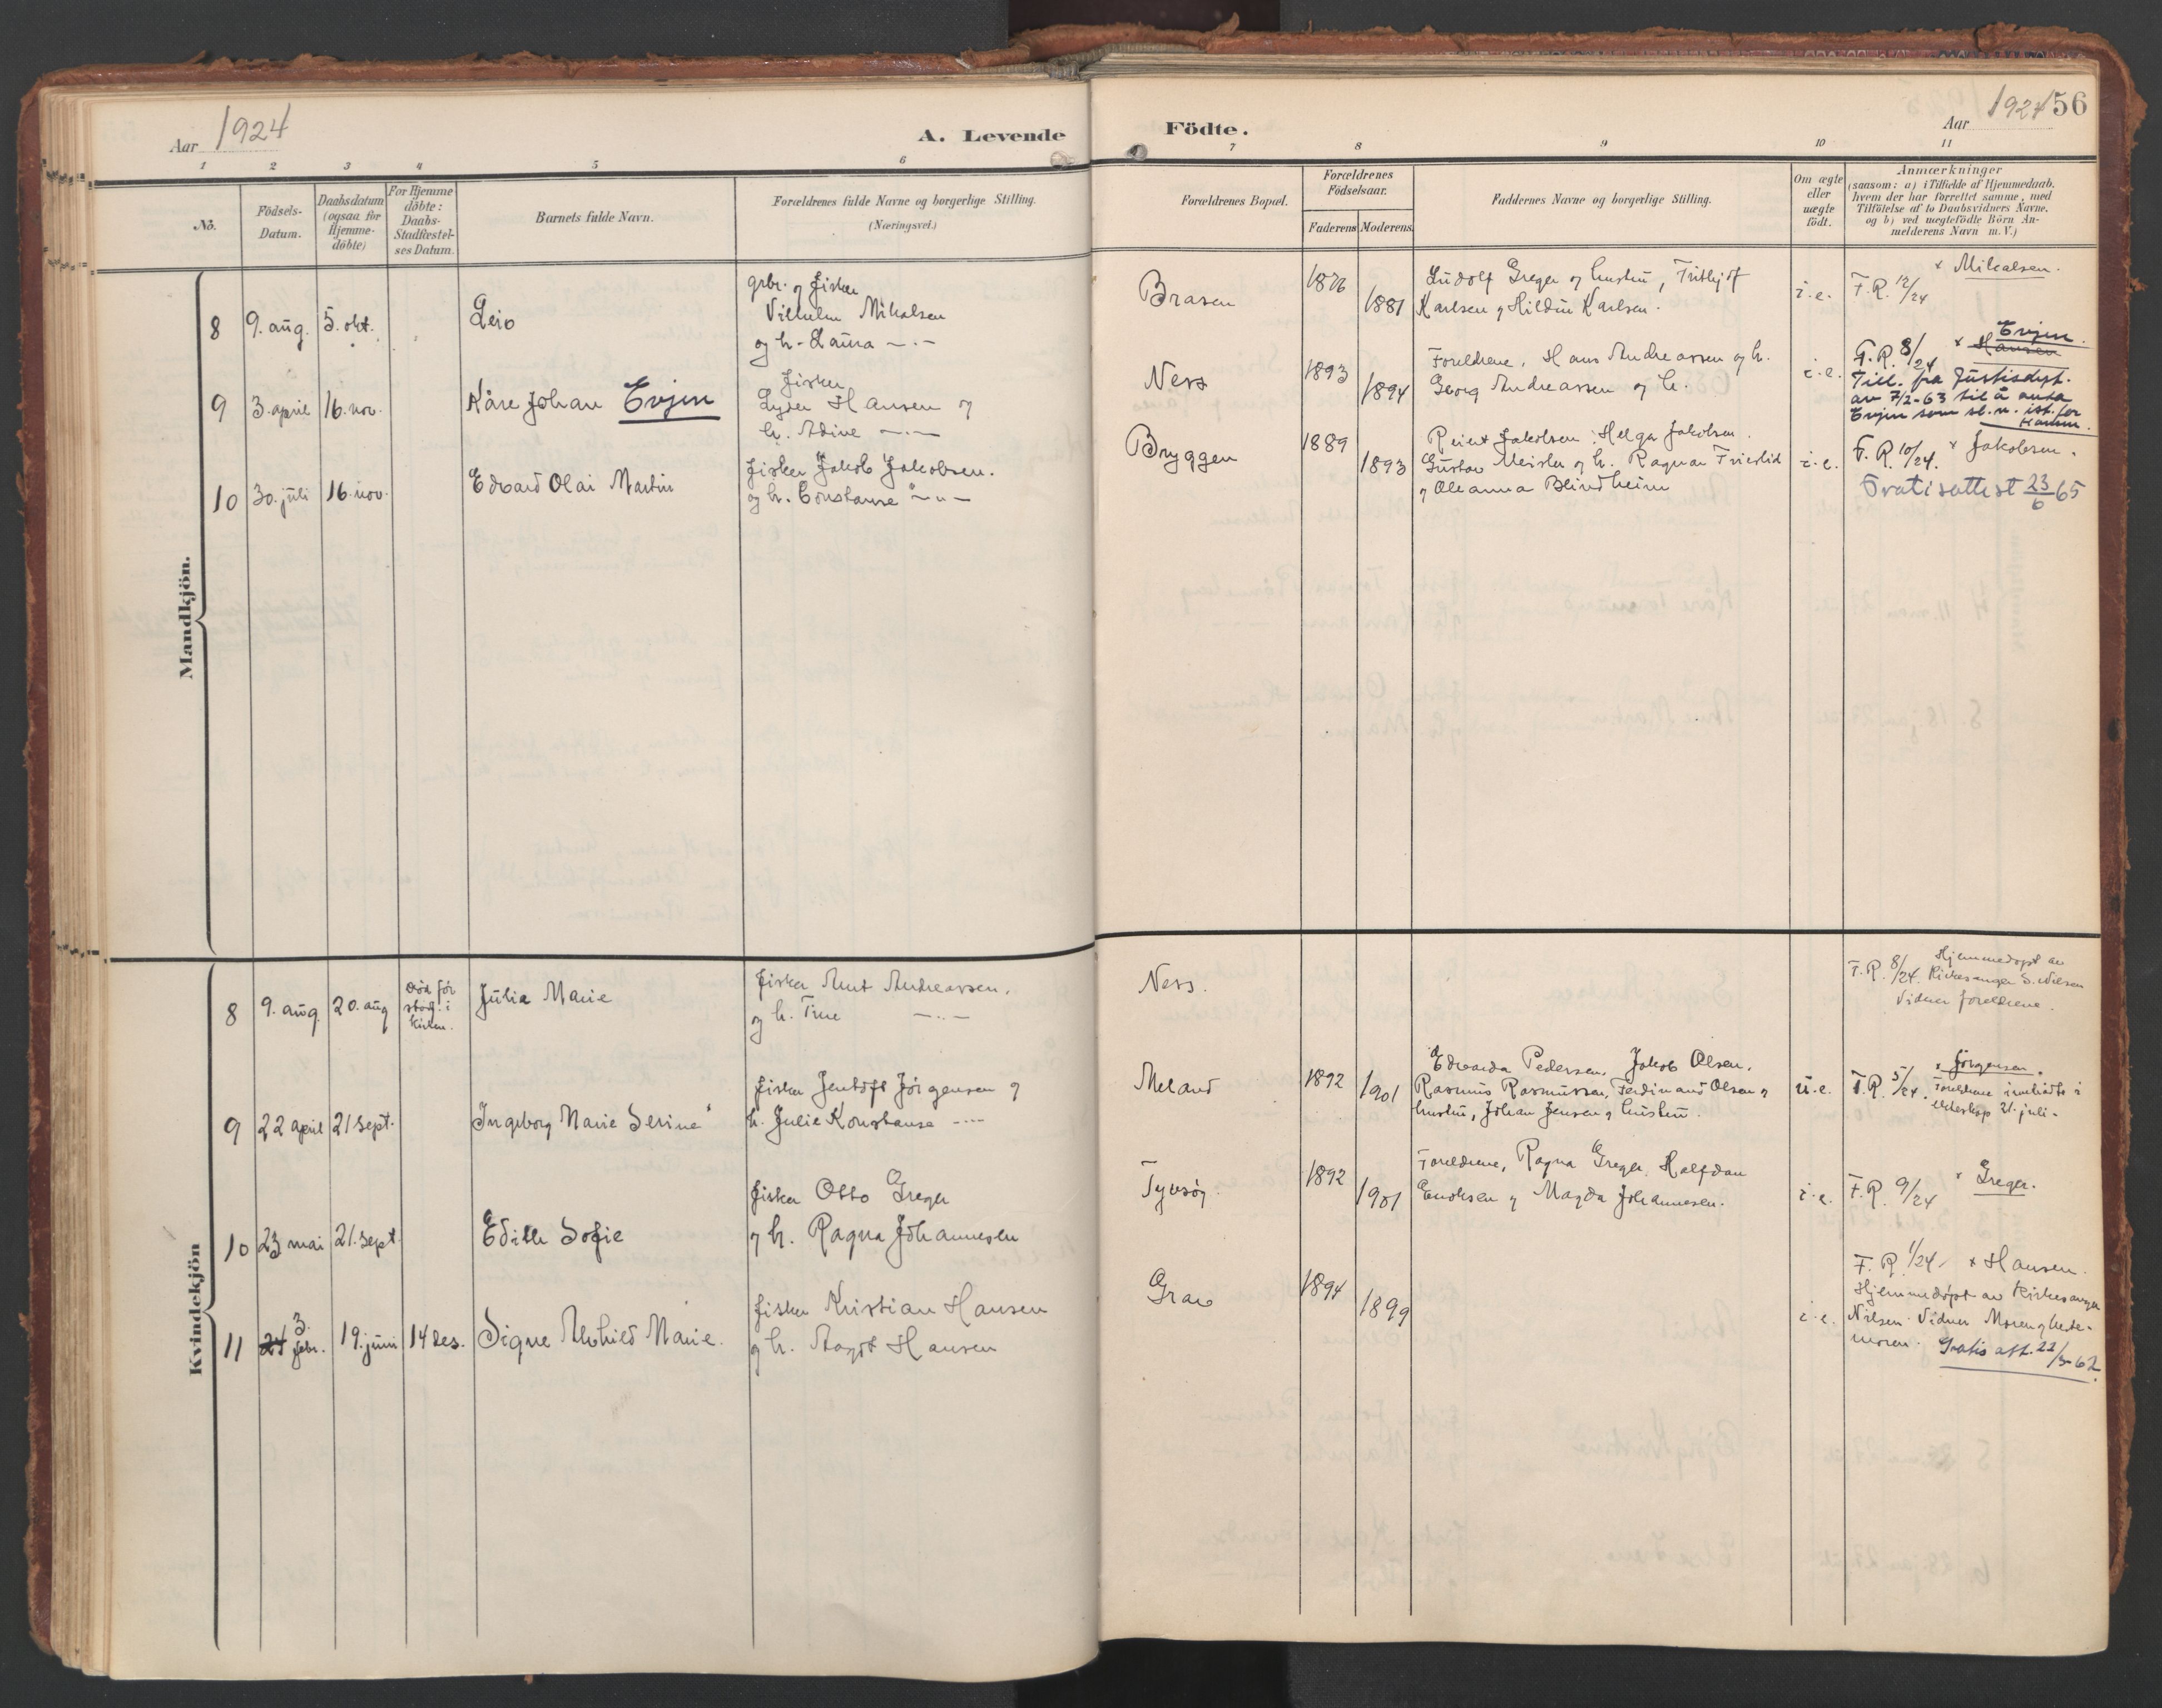 Aar 1924
A. Levende
Födte.
Aar 1924
56
1 2 3 4 5 6 7 8 9 10 11
No.
Födsels-
Datum.
Daabsdatum
(ogsaa for
Hjemme-
döbte)
For Hjemme
döbte:
Daabs-
Stadfæstel-
ses Datum.
Barnets fulde Navn.
Forældrenes fulde Navne og borgerlige Stilling.
(Næringsvei.)
Forældrenes Bopæl.
Forældrenes
Födselsaar.
Faderens
Moderens
Faddernes Navne og borgerlige Stilling.
Om ægte
eller
uægte
födt.
Anmærkninger
(saasom: a) i Tilfælde af Hjemmedaab.
hvem der har forrettet samme, med
Tilföielse af to Daabsvidners Navne.
og b) ved uægtefödte Börn An-
melderens Navn m. V.)
Mandkjön.
8 9. aug. 5. okt. Leiv
grbr. og fisker
Vilhelm Mikalsen
og h. Laura —..—
Brasen 1876 1881
Ludolf Greger og hustru, Frithjof
Karlsen og Hildur Karlsen.
i.e. F.R. 12/24 x Mikalsen.
9 3. april 16. nov. Kåre Johan Evjen
fisker
Lyder Hansen og
h. Adine —..—
Ness 1893 1894
Foreldrene, Hans Andreassen og h.
Georg Andreassen og h.
i.e. F.R. 8/24 x Hansen Evjen.
Till. fra Justisdept.
av 7/2-63 til å anta
Evjen som sl.n. ist. for
Hansen.
10 30. juli 16. nov. Edvard Olai Martin
fisker Jakob Jakobsen.
og h. Constanse —..—
Bryggen 1889 1893
Reiert Jakobsen, Helga Jakobsen.
Gustav Meisler og h. Ragnar Friestid
og Oleanna Blindheim
i.e. F.R. 10/24. x Jakobsen.
Gratisattest 23/6 65
Kvindekjön
8 9. aug. 20. aug død før
stadf. i
kirken.
Julia Marie
fisker Arnt Andreassen.
og h. Trine —..—
Ness.
F.R. 8/24. Hjemmedøpt av
Kirkesanger S. Nilsen
Vidner foreldrene.
9 22 april 21 sept. Ingeborg Marie Serine
fisker Jentoft Jørgensen og
h. Julie Konstanse —..—
Meland 1892 1901
Edvarda Pedersen, Jakob Olsen,
Rasmus Rasmussen, Ferdinand Olsen og
hustru, Johan Jensen og hustru.
u.e. F.R. 5/24. x Jørgensen.
Foreldrene inntrådte i
ekteskap 21. juli.
10 23 mai 21. sept. Edith Sofie
fisker Otto Greger
og h. Ragna Johannesen
Tyvsøy. 1892 1901
Foreldrene, Ragna Greger, Halfdan
Enoksen og Magda Johannesen.
i.e. F.R. 9/24 x Greger.
11 24 3. febr. 19. juni 14 des. Signe Alvhild Marie.
fisker Kristian Hansen
og h. Aagot Hansen
Grav 1894 1899
i.e. F.R. 1/24 x Hansen.
Hjemmedøpt av Kirkesanger
Nilsen. Vidner Moren og bede-
moren. Gratis att. 22/3-62.